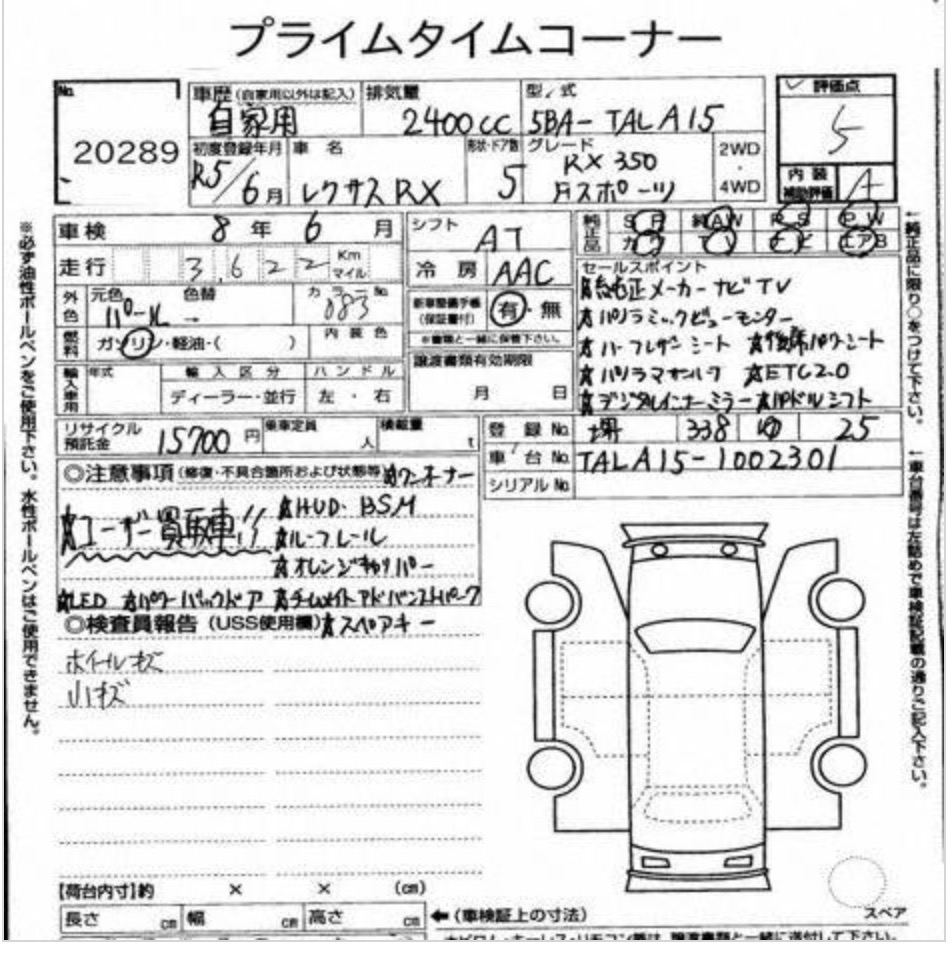 プライムタイムコーナー
No. 20289
車歴 (自家用以外は記入) 自家用
排気量 2400cc
型式 5BA-TALA15
評価点 5
初度登録年月 R5/6月
車名 レクサスRX
形状・ドア数 5
グレード RX 350 Fスポーツ
2WD・4WD
内装補助評価 A
車検 8年 6月
シフト AT
純正品 AW PS PW
カワ ナビ エアB
走行 3,622 Km マイル
冷房 AAC
セールスポイント
外色 元色 パール 色替 →
カラーNo. 083
新車整備手帳(保証書付) 有・無
※書類と一緒に保管下さい。
純正メーカーナビTV
★パノラミックビューモニター
燃料 ガソリン・軽油・( ) 内装色
★ハーフレザーシート ★後席パワーシート
譲渡書類有効期限 月 日
★パノラマサンルーフ ★ETC2.0
輸入車用 年式 輸入区分 ディーラー・並行 ハンドル 左・右
★デジタルインナーミラー ★パドルシフト
リサイクル預託金 15700円
乗車定員 人
積載量 t
登録No. 堺 338 ゆ 25
車台No. TALA15-1002301
シリアルNo.
◎注意事項 (修復・不具合箇所および状態等) ★ワンオーナー
★ユーザー買取車!!
★HUD・BSM
★ルーフレール
★オレンジキャリパー
★LED ★パワーバックドア ★チームメイトアドバンストパーク
◎検査員報告 (USS使用欄) ★スペアキー
ホイールキズ
小キズ
【荷台内寸】約 × × (cm)
長さ cm 幅 cm 高さ cm
←(車検証上の寸法)
スペア
※必ず油性ボールペンをご使用下さい。水性ボールペンはご使用できません。
←純正品に限り○をつけて下さい。
←車台番号は左詰めで車検証記載の通りご記入下さい。